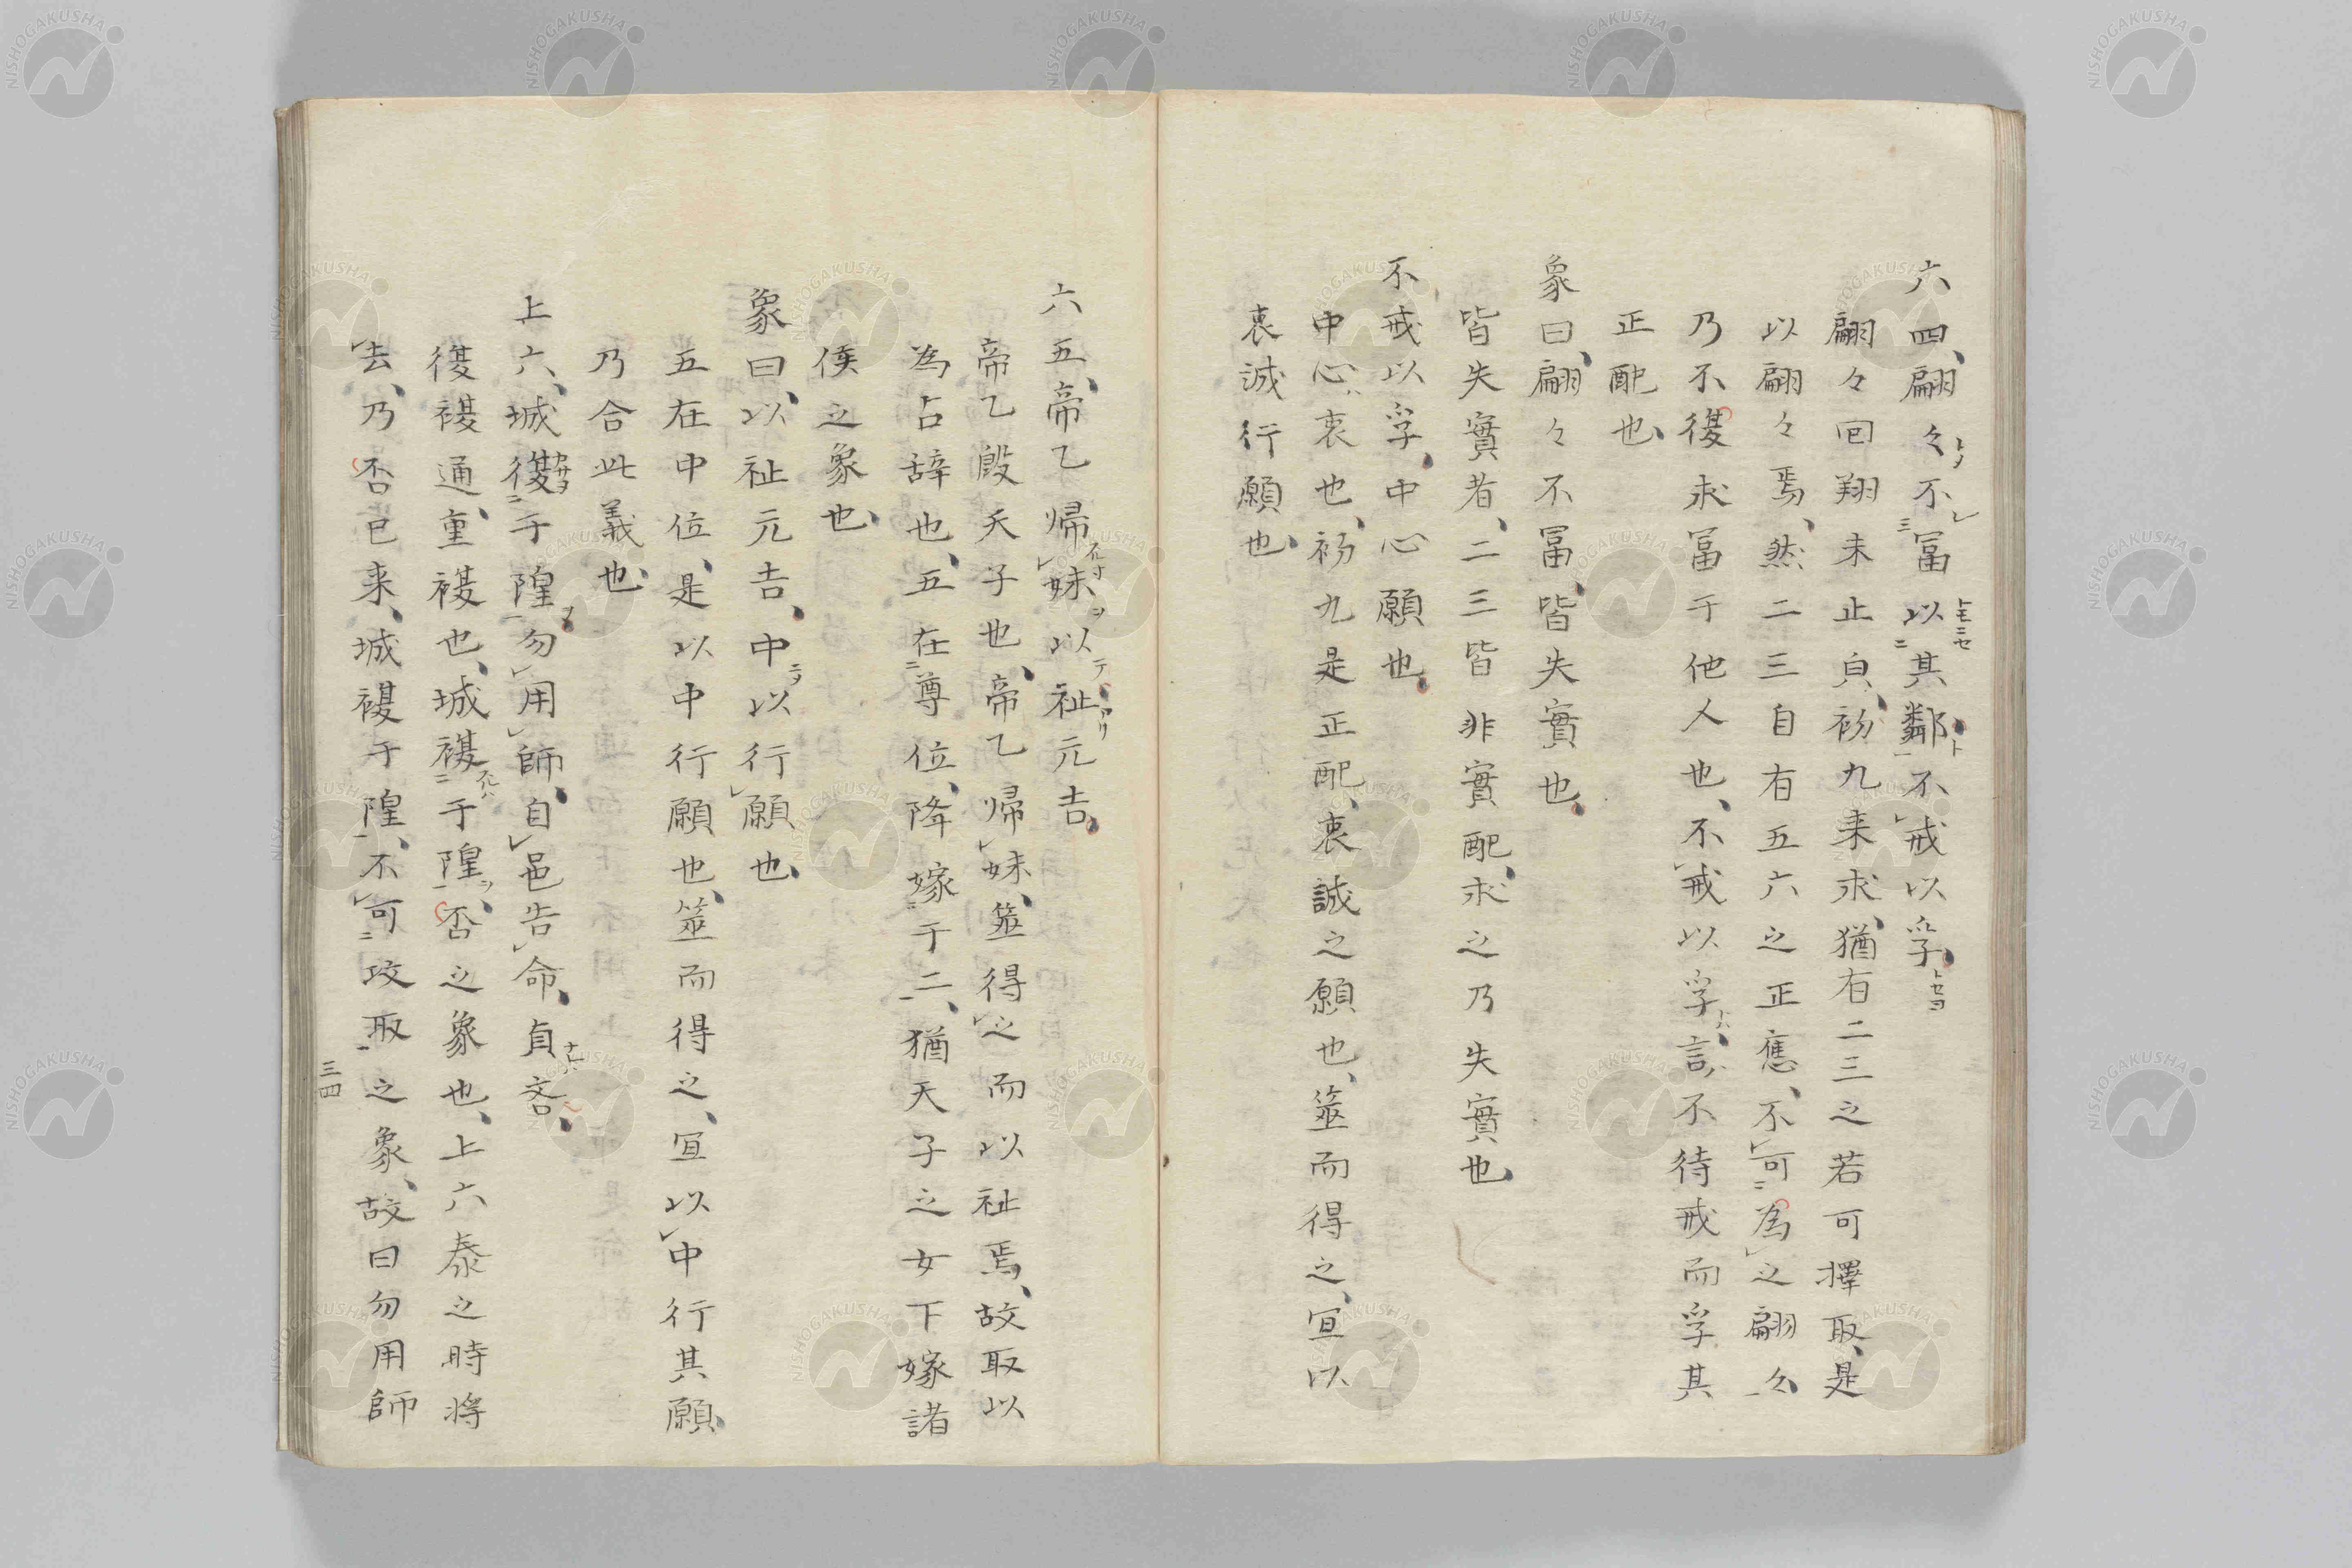 六四、翩々不富以其鄰不戒以孚、
翩々回翔未止皃、初九来求、猶有二三之若可擇取、是
以翩々焉、然二三自有五六之正應、不可為之翩々
乃不復求冨于他人也、不戒以孚言不待戒而孚其
正配也、
象曰、翩々不冨、皆失實也、
皆失實者、二三皆非實配、求之乃失實也、
不戒以孚、中心願也、
中心衷也、初九是正配、衷誠之願也、筮而得之、宜以
衷誠行願也、
六五、帝乙帰妹以祉元吉、
帝乙殷天子也、帝乙帰妹、筮得之而以祉焉、故取以
為占辞也、五在尊位、降嫁于二、猶天子之女下嫁諸
侯之象也、
象曰、以祉元吉、中以行願也、
五在中位、是以中行願也、筮而得之、宜以中行其願、
乃合此義也、
上六、城復于隍勿用師、自邑告命、貞吝、
復複通、重複也、城複于隍、否之象也、上六泰之時将
去、乃否已来、城複于隍、不可攻取之象、故曰勿用師
三四